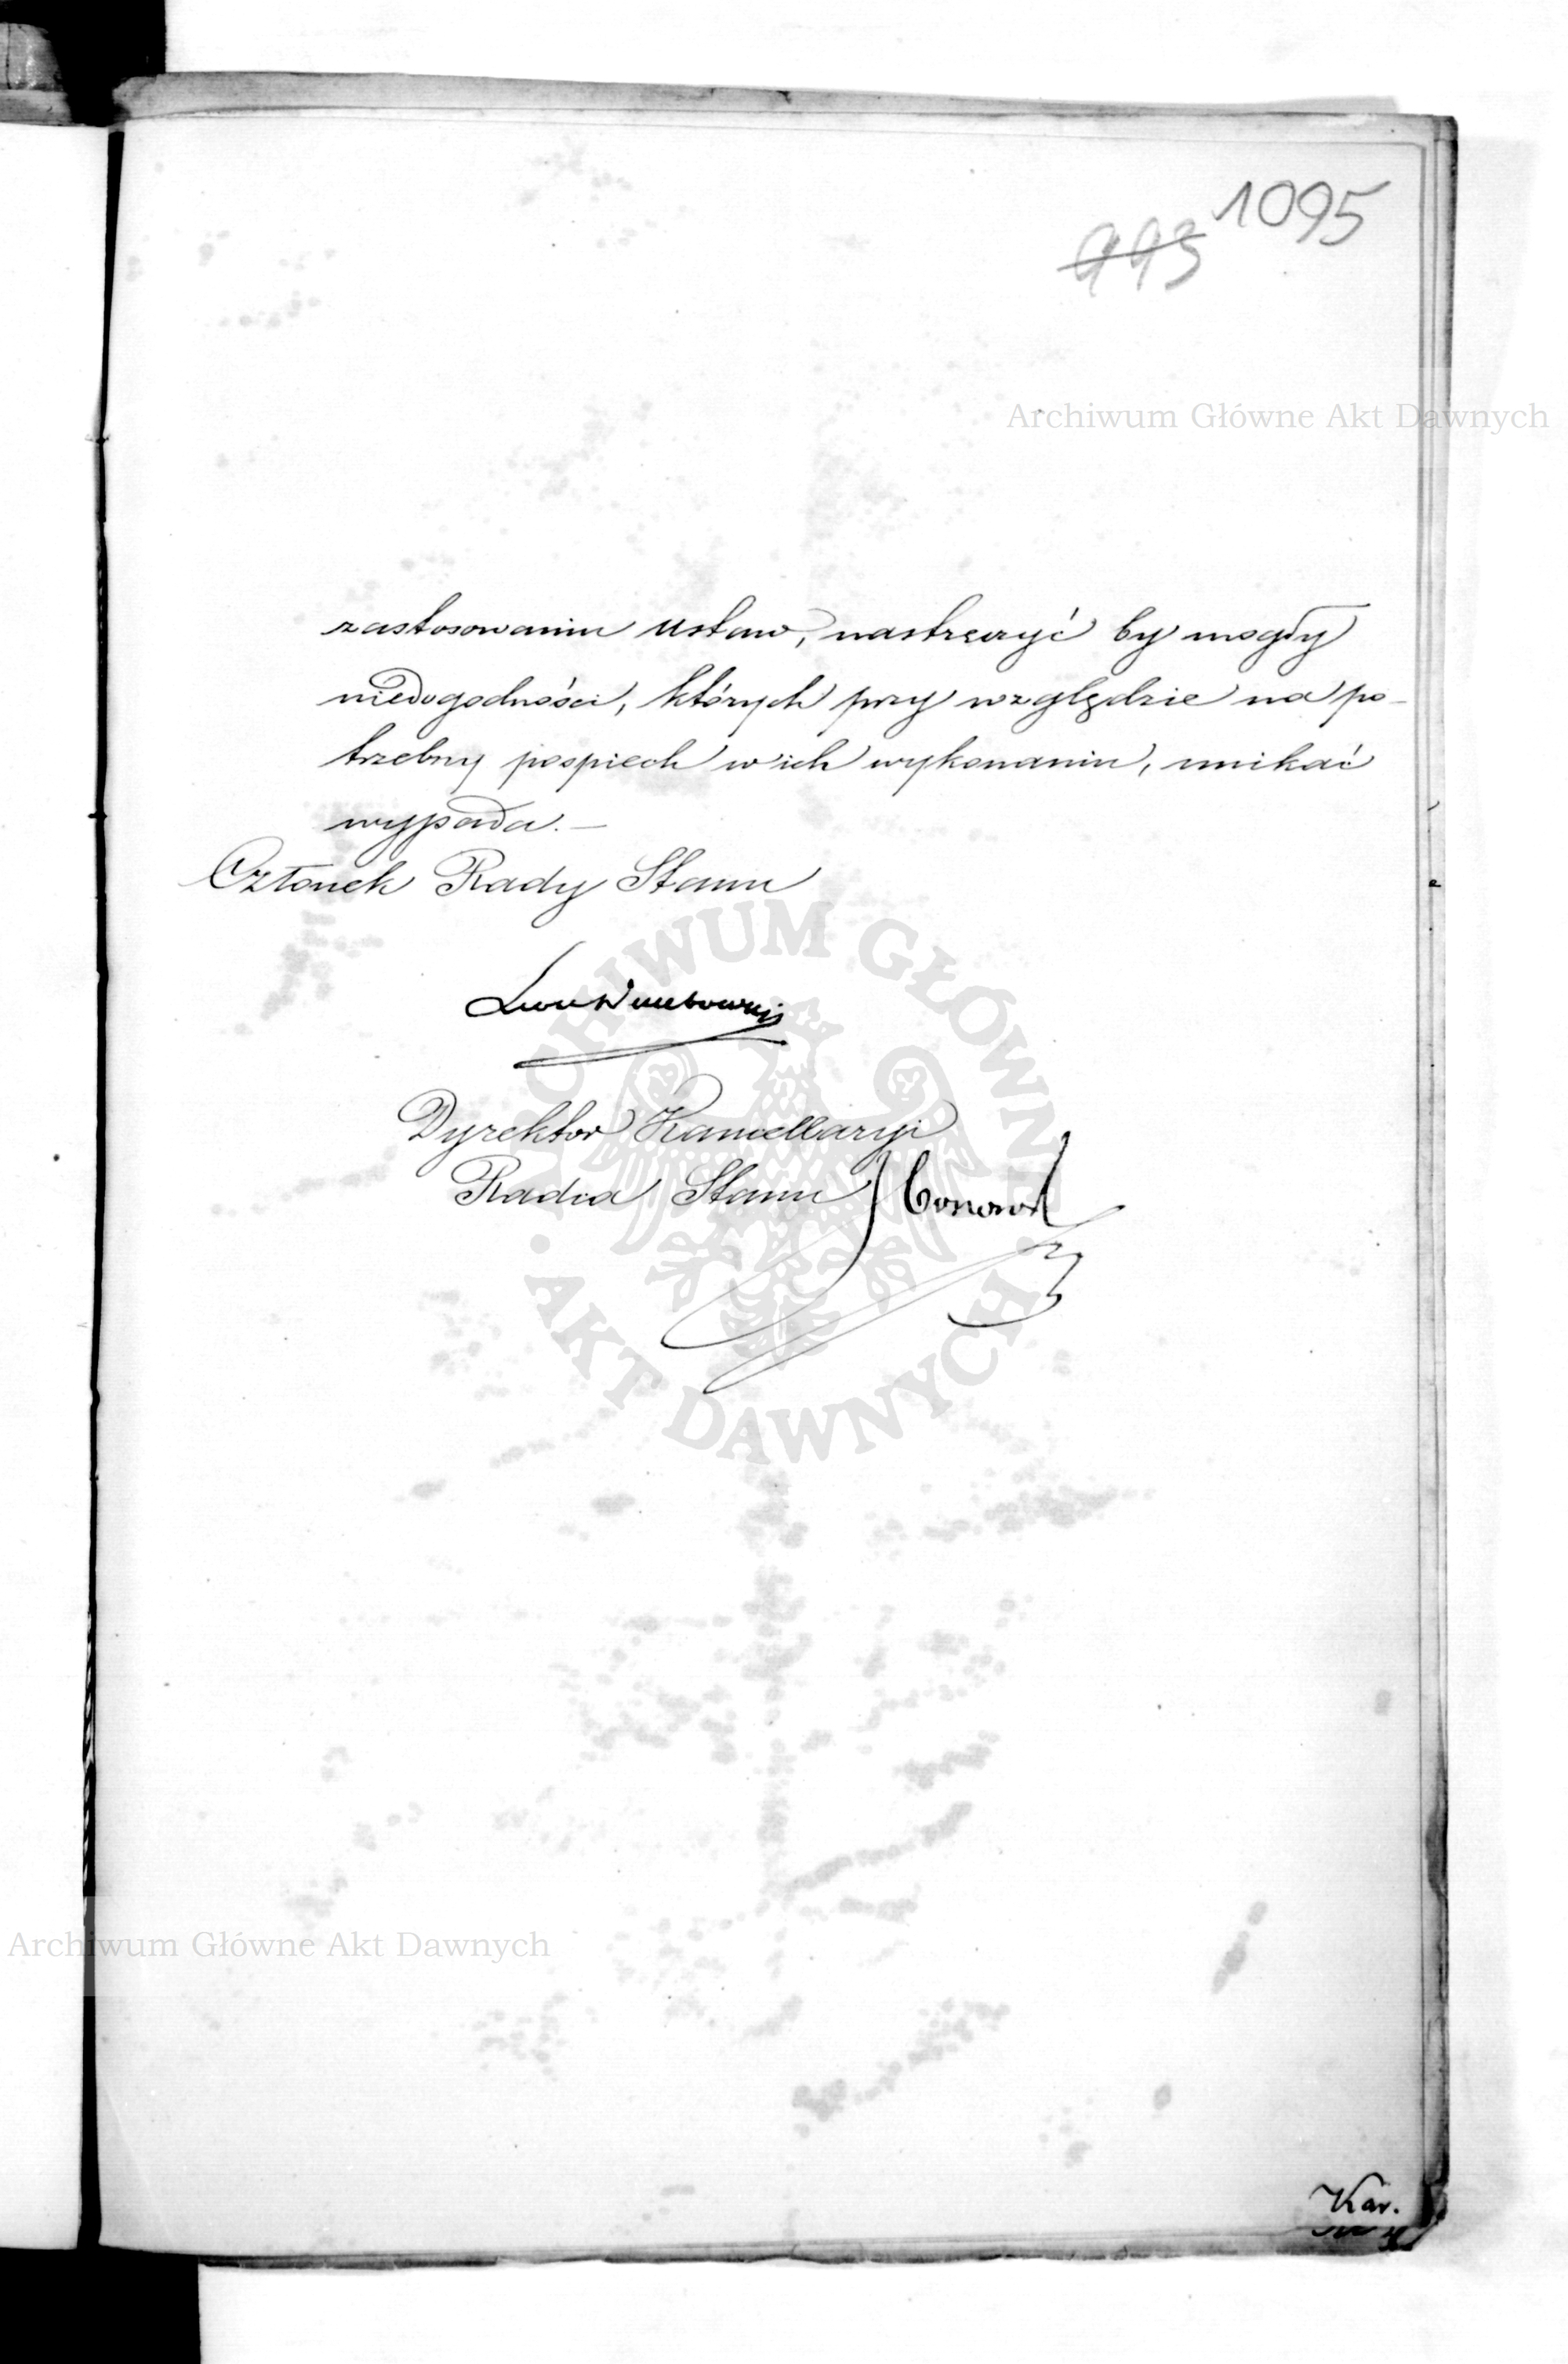 1095
993
Archiwum Główne Akt Dawnych
zastosowaniu ustaw, nastręczyć by mogły
niedogodności, których przy względzie na po-
trzebny pospiech w ich wykonaniu, unikać
wypada. —
Członek Rady Stanu
ARCHIWUM GŁÓWNE
Dyrektor Kancellaryi
Radca Stanu
AKT DAWNYCH
Archiwum Główne Akt Dawnych
Kar.